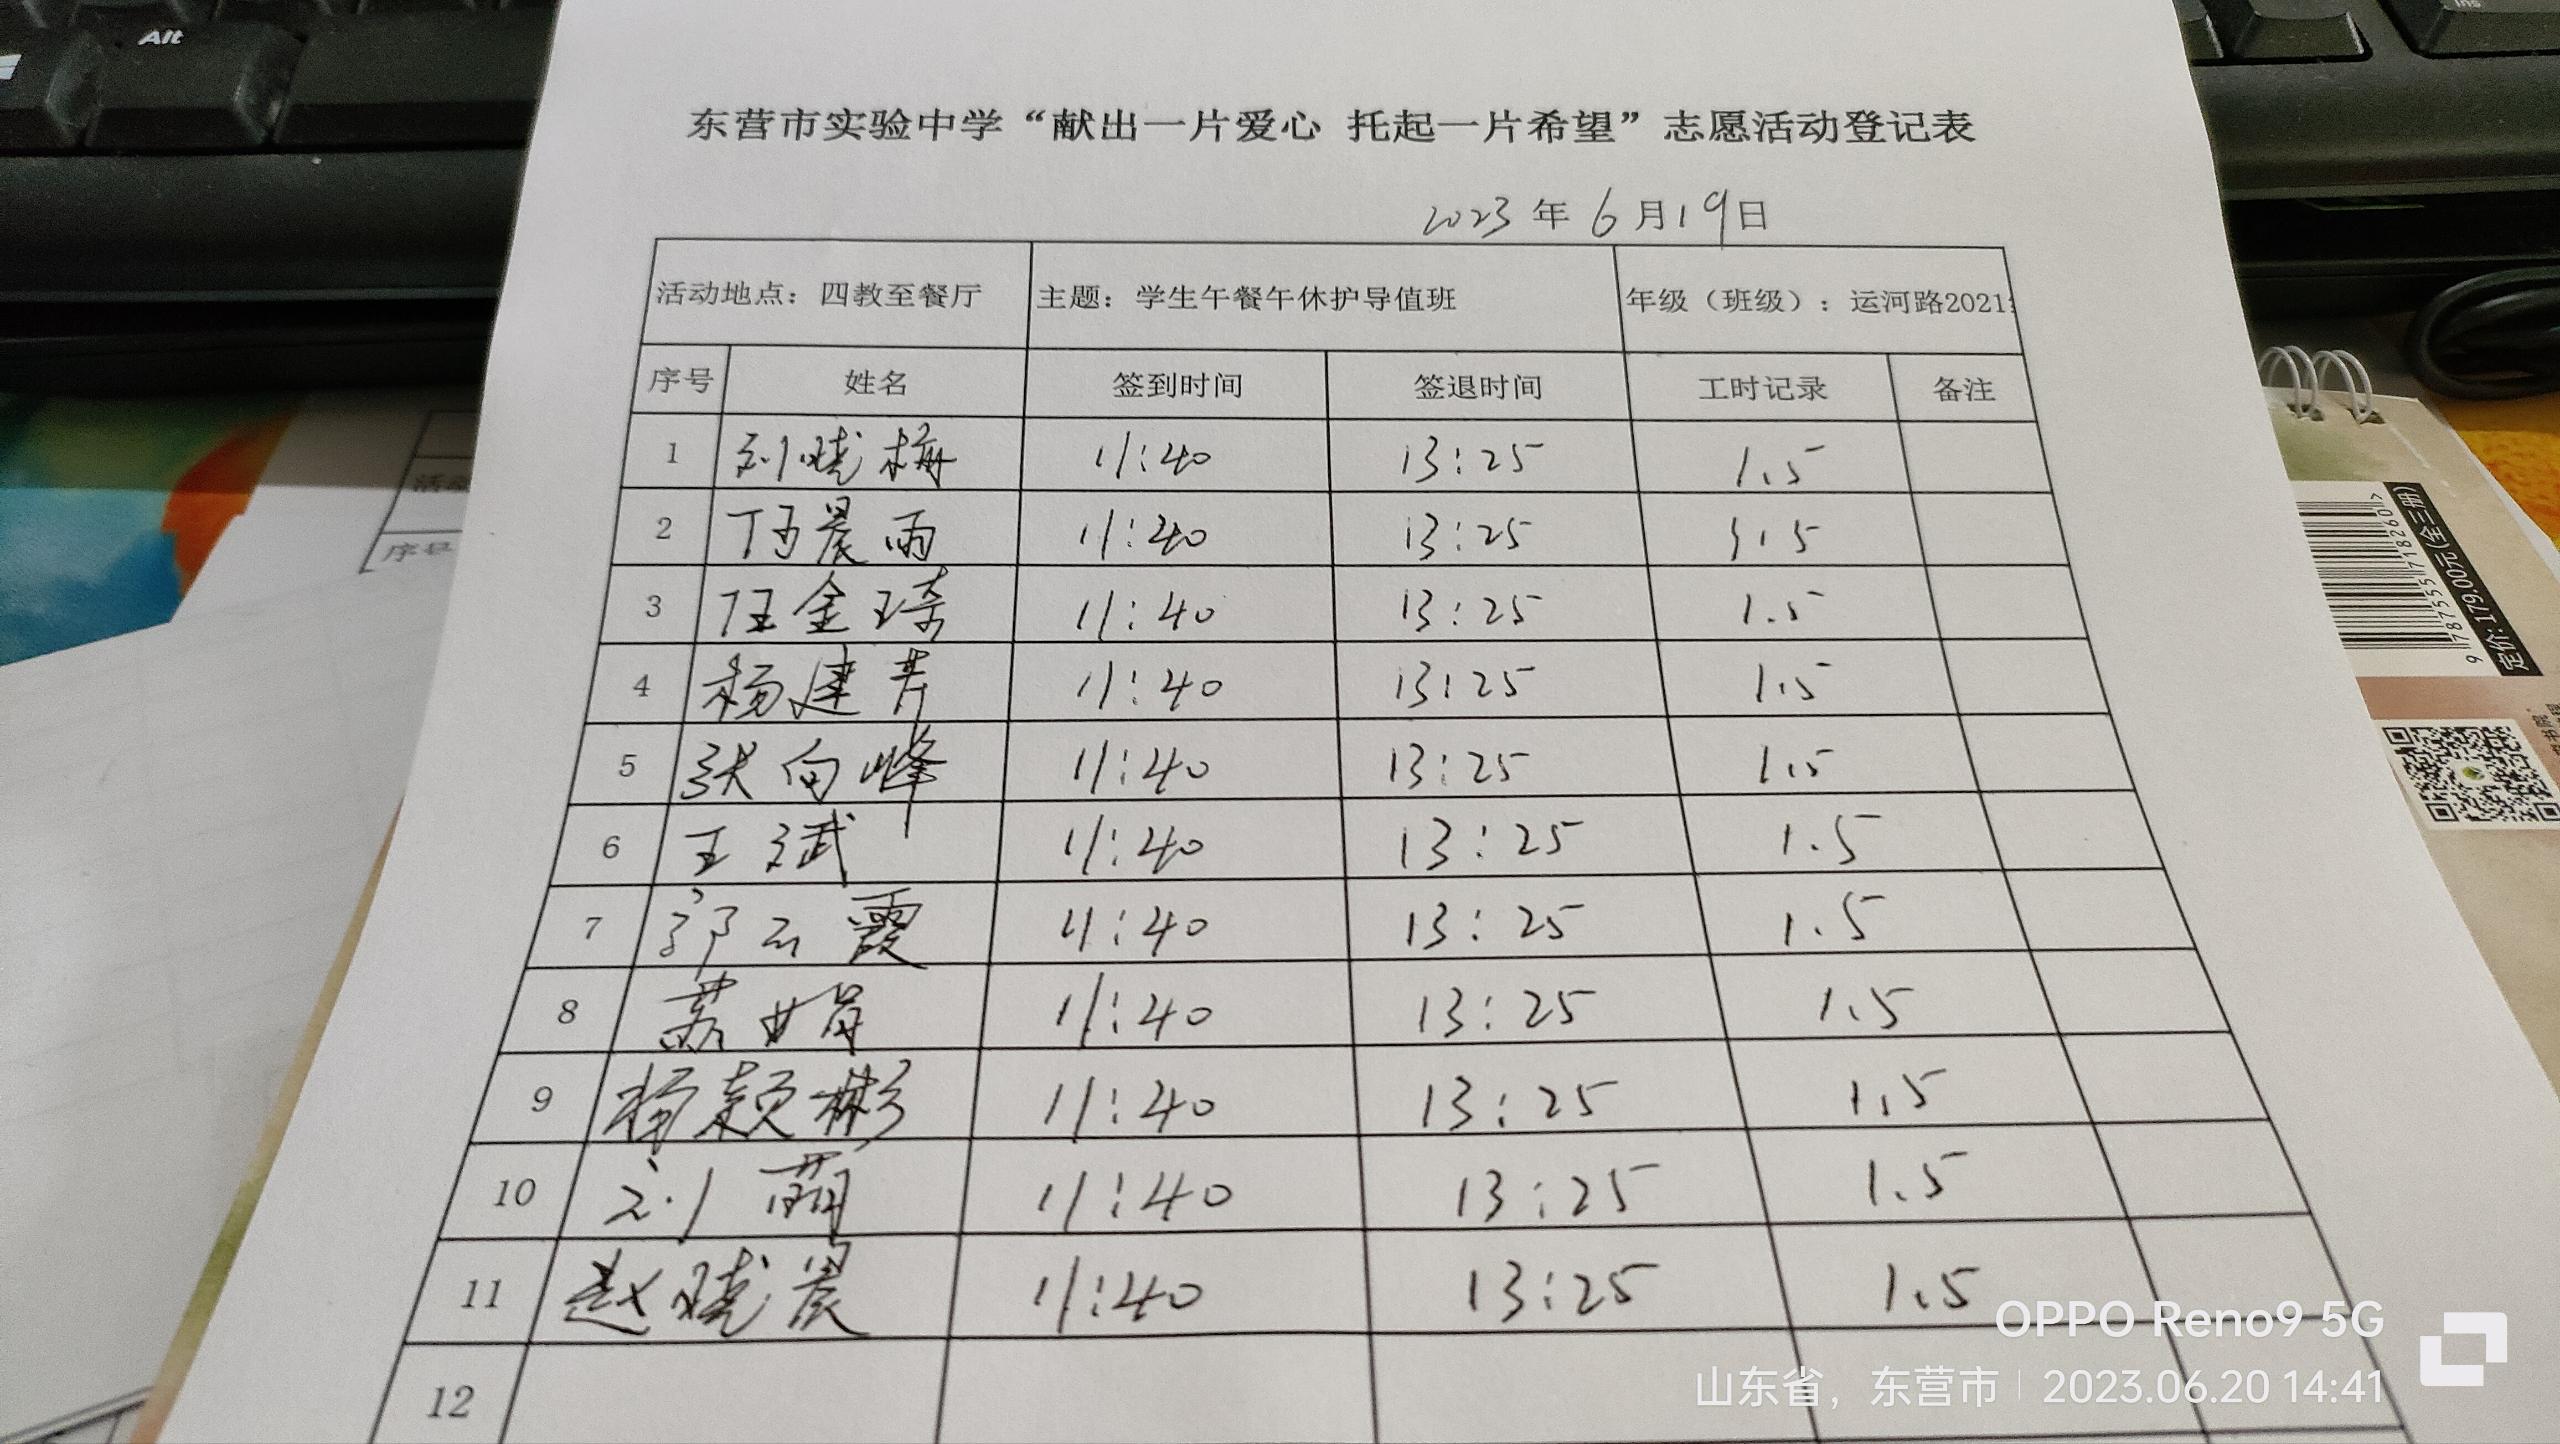 Alt
Ins
东营市实验中学“献出一片爱心 托起一片希望”志愿活动登记表
2023年6月19日
活动地点：四教至餐厅 主题：学生午餐午休护导值班 年级（班级）：运河路2021
序号 姓名 签到时间 签退时间 工时记录 备注
1 刘晓梅 11:40 13:25 1.5
2 晨雨 11:40 13:25 1.5
3 任金琦 11:40 13:25 1.5
4 杨建芳 11:40 13:25 1.5
5 张向峰 11:40 13:25 1.5
6 王斌 11:40 13:25 1.5
7 郭云霞 11:40 13:25 1.5
8 娟 11:40 13:25 1.5
9 杨颖彬 11:40 13:25 1.5
10 刘萌 11:40 13:25 1.5
11 赵晓晨 11:40 13:25 1.5
12
序号
9 787555 718260 >
定价:179.00元(全三册)
OPPO Reno9 5G
山东省，东营市 | 2023.06.20 14:41